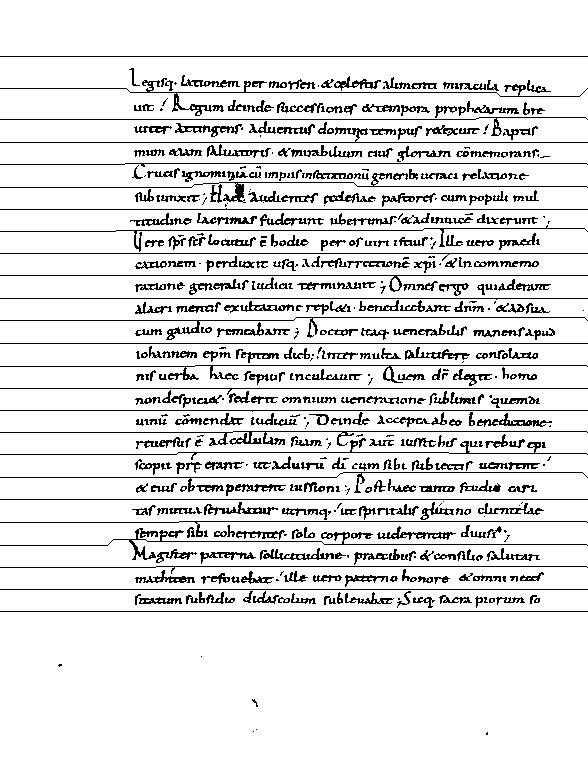 Legisq· lationem per moysen· & cęlestis alimenti miracula replica
uit! Regum deinde successiones & tempora prophetarum bre
uiter attingens· aduentus domini tempus retexuit! Baptis
mum etiam saluatoris· & mirabilium eius gloriam cōmemorans·
Crucis ignominiā cū impiis generibus ueraci relatione
subiunxit; Haec audientes ęcclesiae pastores· cum populi mul
titudine lacrimas fuderunt uberrimas· & adinuicē dixerunt;
Uere sp̄s sc̄s locutus ē hodie per os uiri istius; Ille uero praedi
cationem· perduxit usq· ad resurrectionē xp̄i· & in commemo
ratione generalis iudicii terminauit; Omnes ergo qui aderant
alacri mentis exultatione repleti· benedicebant dn̄m· & ad sua
cum gaudio remeabant; Doctor itaq· uenerabilis manens apud
iohannem ep̄m septem dieb; inter multa salutiferę consolatio
nis uerba haec sepius inculcauit; Quem d̄s elegit· homo
non despiciat· sed erit omnium ueneratione sublimis quem di
uinū cōmendat iudiciū; Deinde accepta ab eo benedictione·
reuersus ē ad cellulam suam; Ep̄s autē iussit his qui rebus epi
scopii pręerant· ut ad uirū dī cum sibi subiectis uenirent·
& eius obtemperarent iussioni; Post haec tanto studio cari
tas mutua seruabatur utrimq· ut spiritalis glutino clientelae
semper sibi coherentes· solo corpore uiderentur diuisi;
Magister paterna sollicitudine· praecibus & consilio salutari
mathiten refouebat· ille uero paterno honore & omni neces
sitatum subsidio didascolum subleuabat; Sicq· sacra piorum so